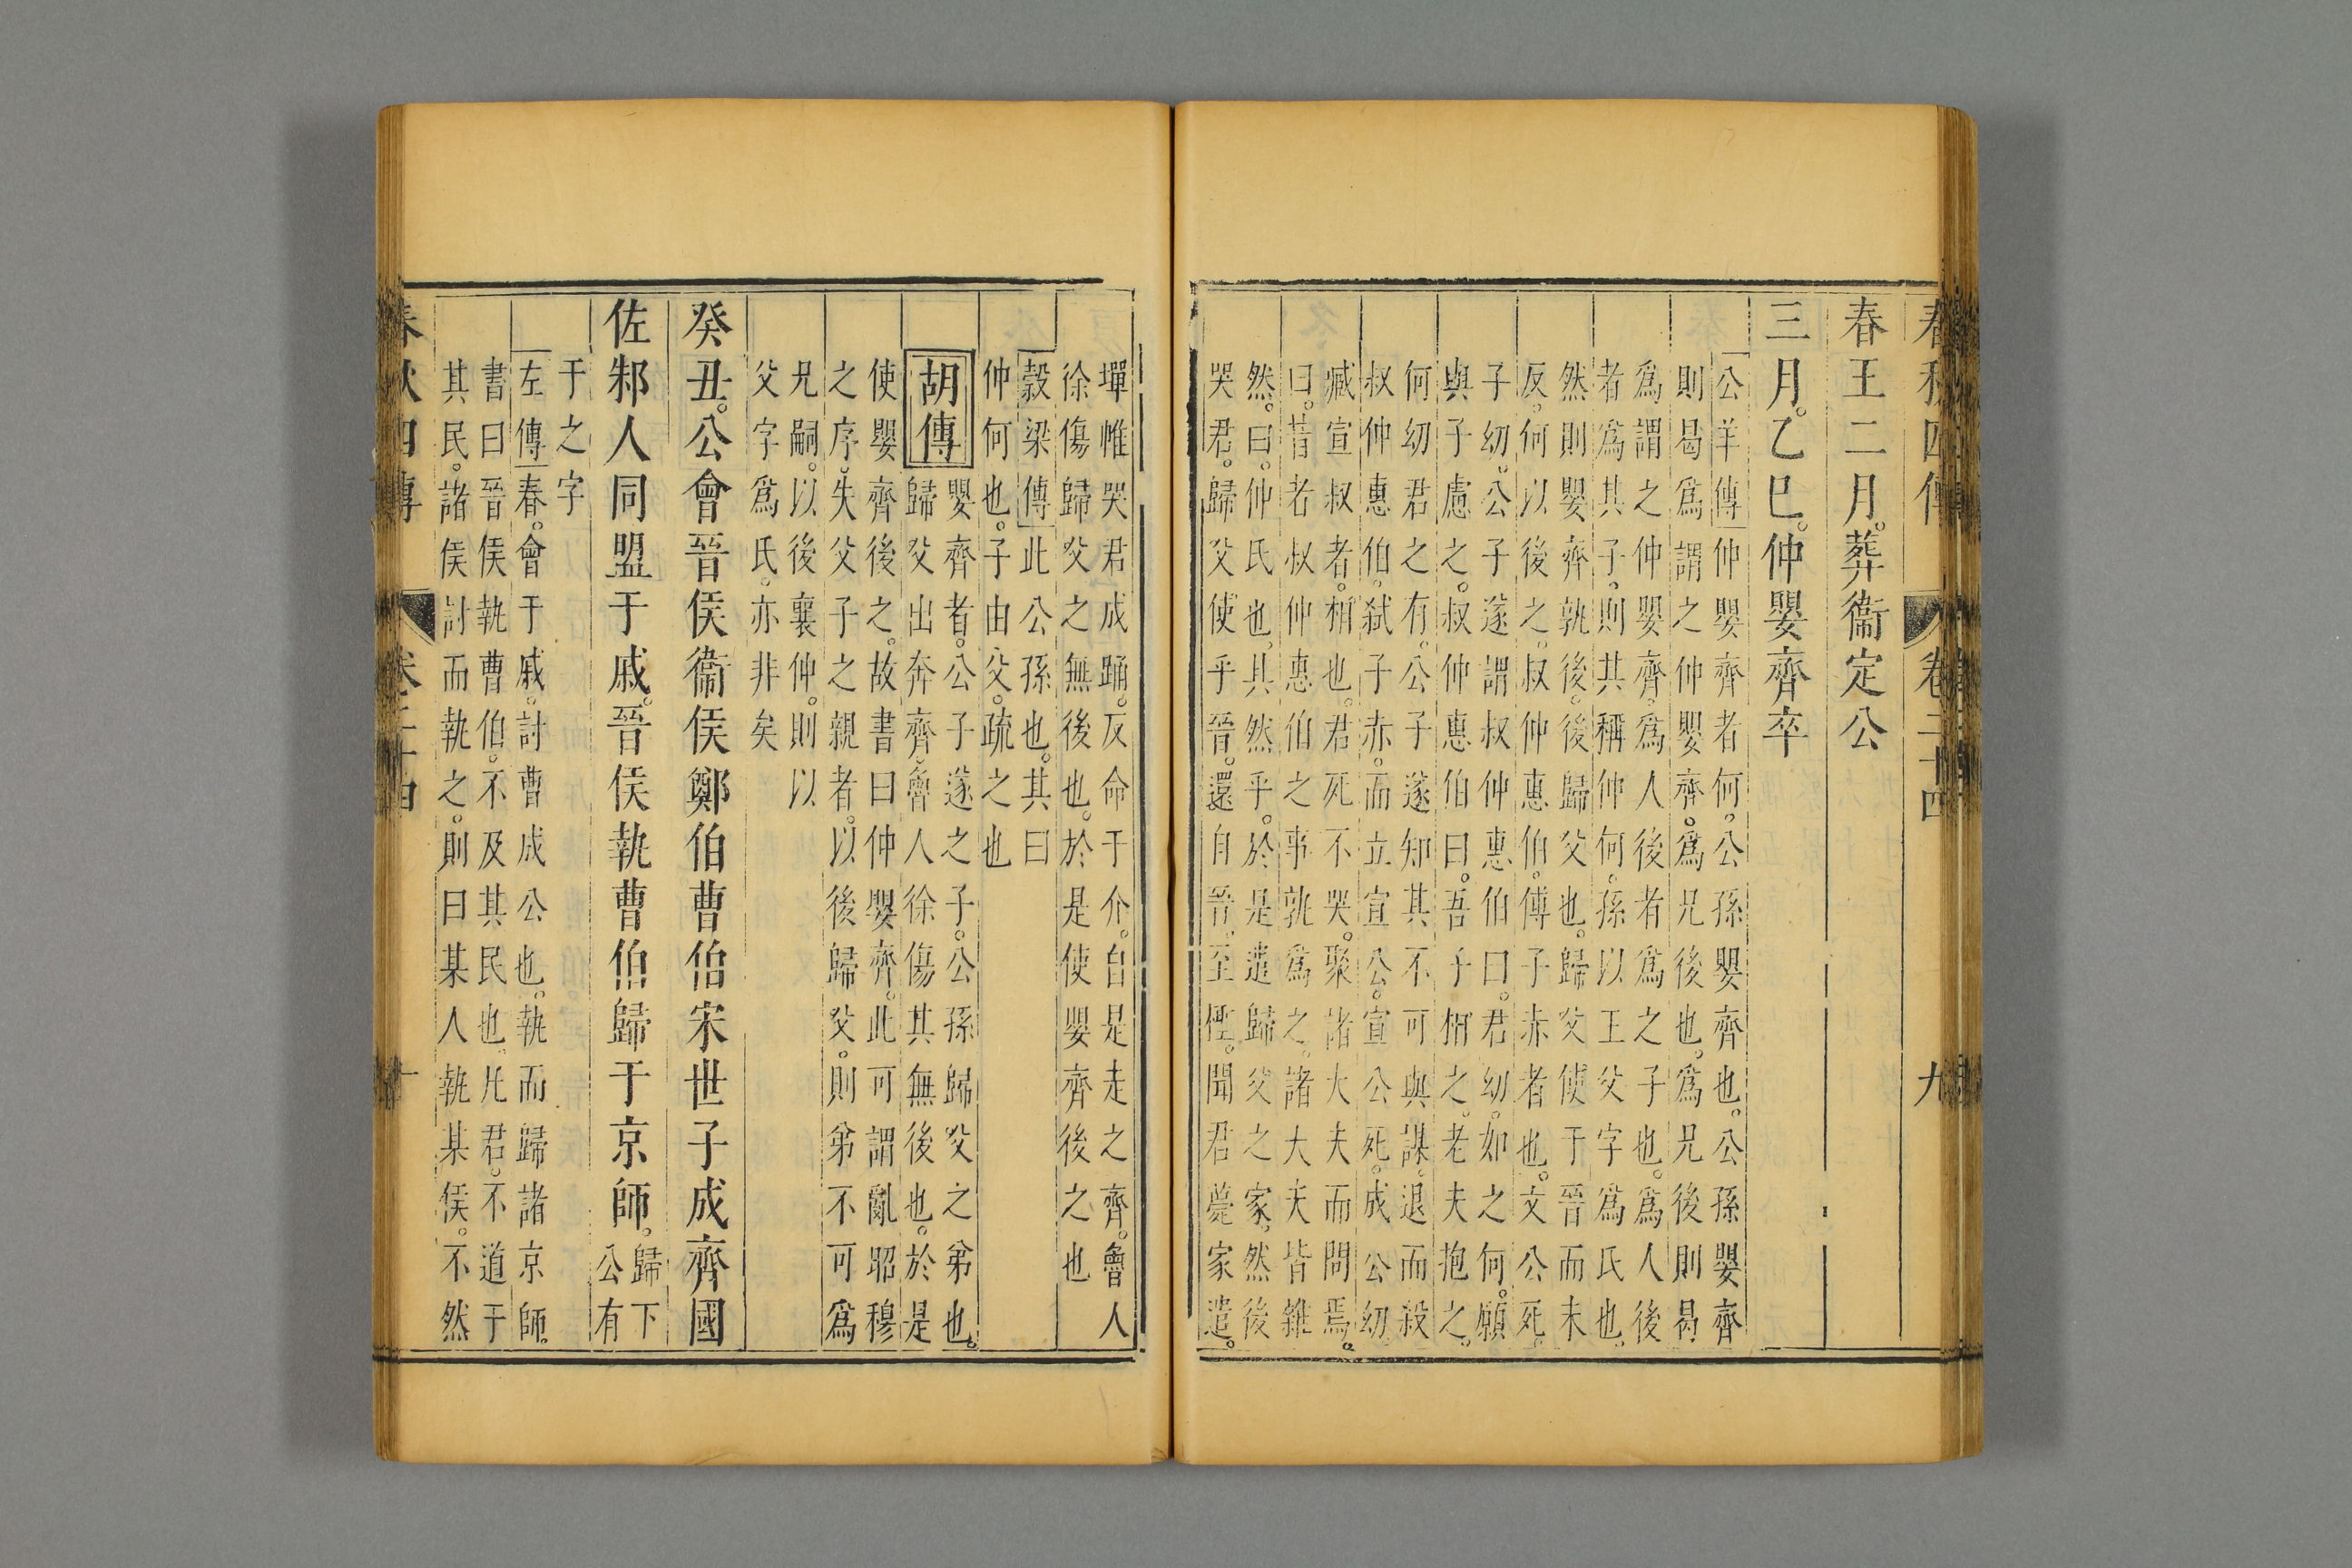 春秋四傳 卷二十四 九
春王二月。葬衞定公
三月。乙巳。仲嬰齊卒
公羊傳仲嬰齊者何。公孫嬰齊也。公孫嬰齊
則曷爲謂之仲嬰齊。爲兄後也。爲兄後則曷
爲謂之仲嬰齊。爲人後者爲之子也。爲人後
者爲其子。則其稱仲何。孫以王父字爲氏也。
然則嬰齊孰後。後歸父也。歸父使于晉而未
反。何以後之。叔仲惠伯。傅子赤者也。文公死。
子幼。公子遂謂叔仲惠伯曰。君幼。如之何。願
與子慮之。叔仲惠伯曰。吾子相之。老夫抱之。
何幼君之有。公子遂知其不可與謀。退而殺
叔仲惠伯。弑子赤。而立宣公。宣公死。成公幼。
臧宣叔者。相也。君死不哭。聚諸大夫而問焉。
曰。昔者叔仲惠伯之事孰爲之。諸大夫皆雜
然。曰。仲氏也。其然乎。於是遣歸父之家。然後
哭君。歸父使乎晉。還自晉。至檉。聞君薨家遣。
墠帷哭君成踊。反命于介。自是走之齊。魯人
徐傷歸父之無後也。於是使嬰齊後之也
穀梁傳此公孫也。其曰
仲何也。子由父。疏之也
胡傳嬰齊者。公子遂之子。公孫歸父之弟也。
歸父出奔齊。魯人徐傷其無後也。於是
使嬰齊後之。故書曰仲嬰齊。此可謂亂昭穆
之序。失父子之親者。以後歸父。則弟不可爲
兄嗣。以後襄仲。則以
父字爲氏。亦非矣
癸丑。公會晉侯衞侯鄭伯曹伯宋世子成齊國
佐邾人同盟于戚。晉侯執曹伯歸于京師。歸下
公有
于之字
左傳春。會于戚。討曹成公也。執而歸諸京師。
書曰晉侯執曹伯。不及其民也。凡君。不道于
其民。諸侯討而執之。則曰某人執某侯。不然
春秋四傳 卷二十四 十